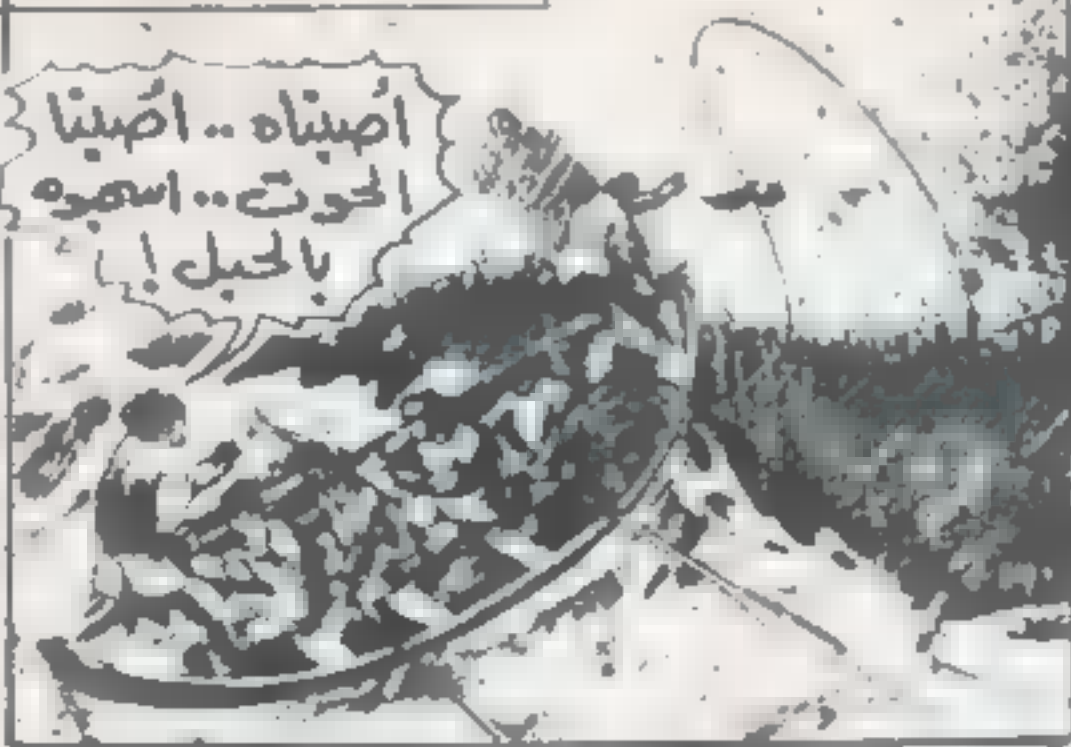 أصبناه .. أصبنا
الحوت .. اسحبوه
بالحبل !